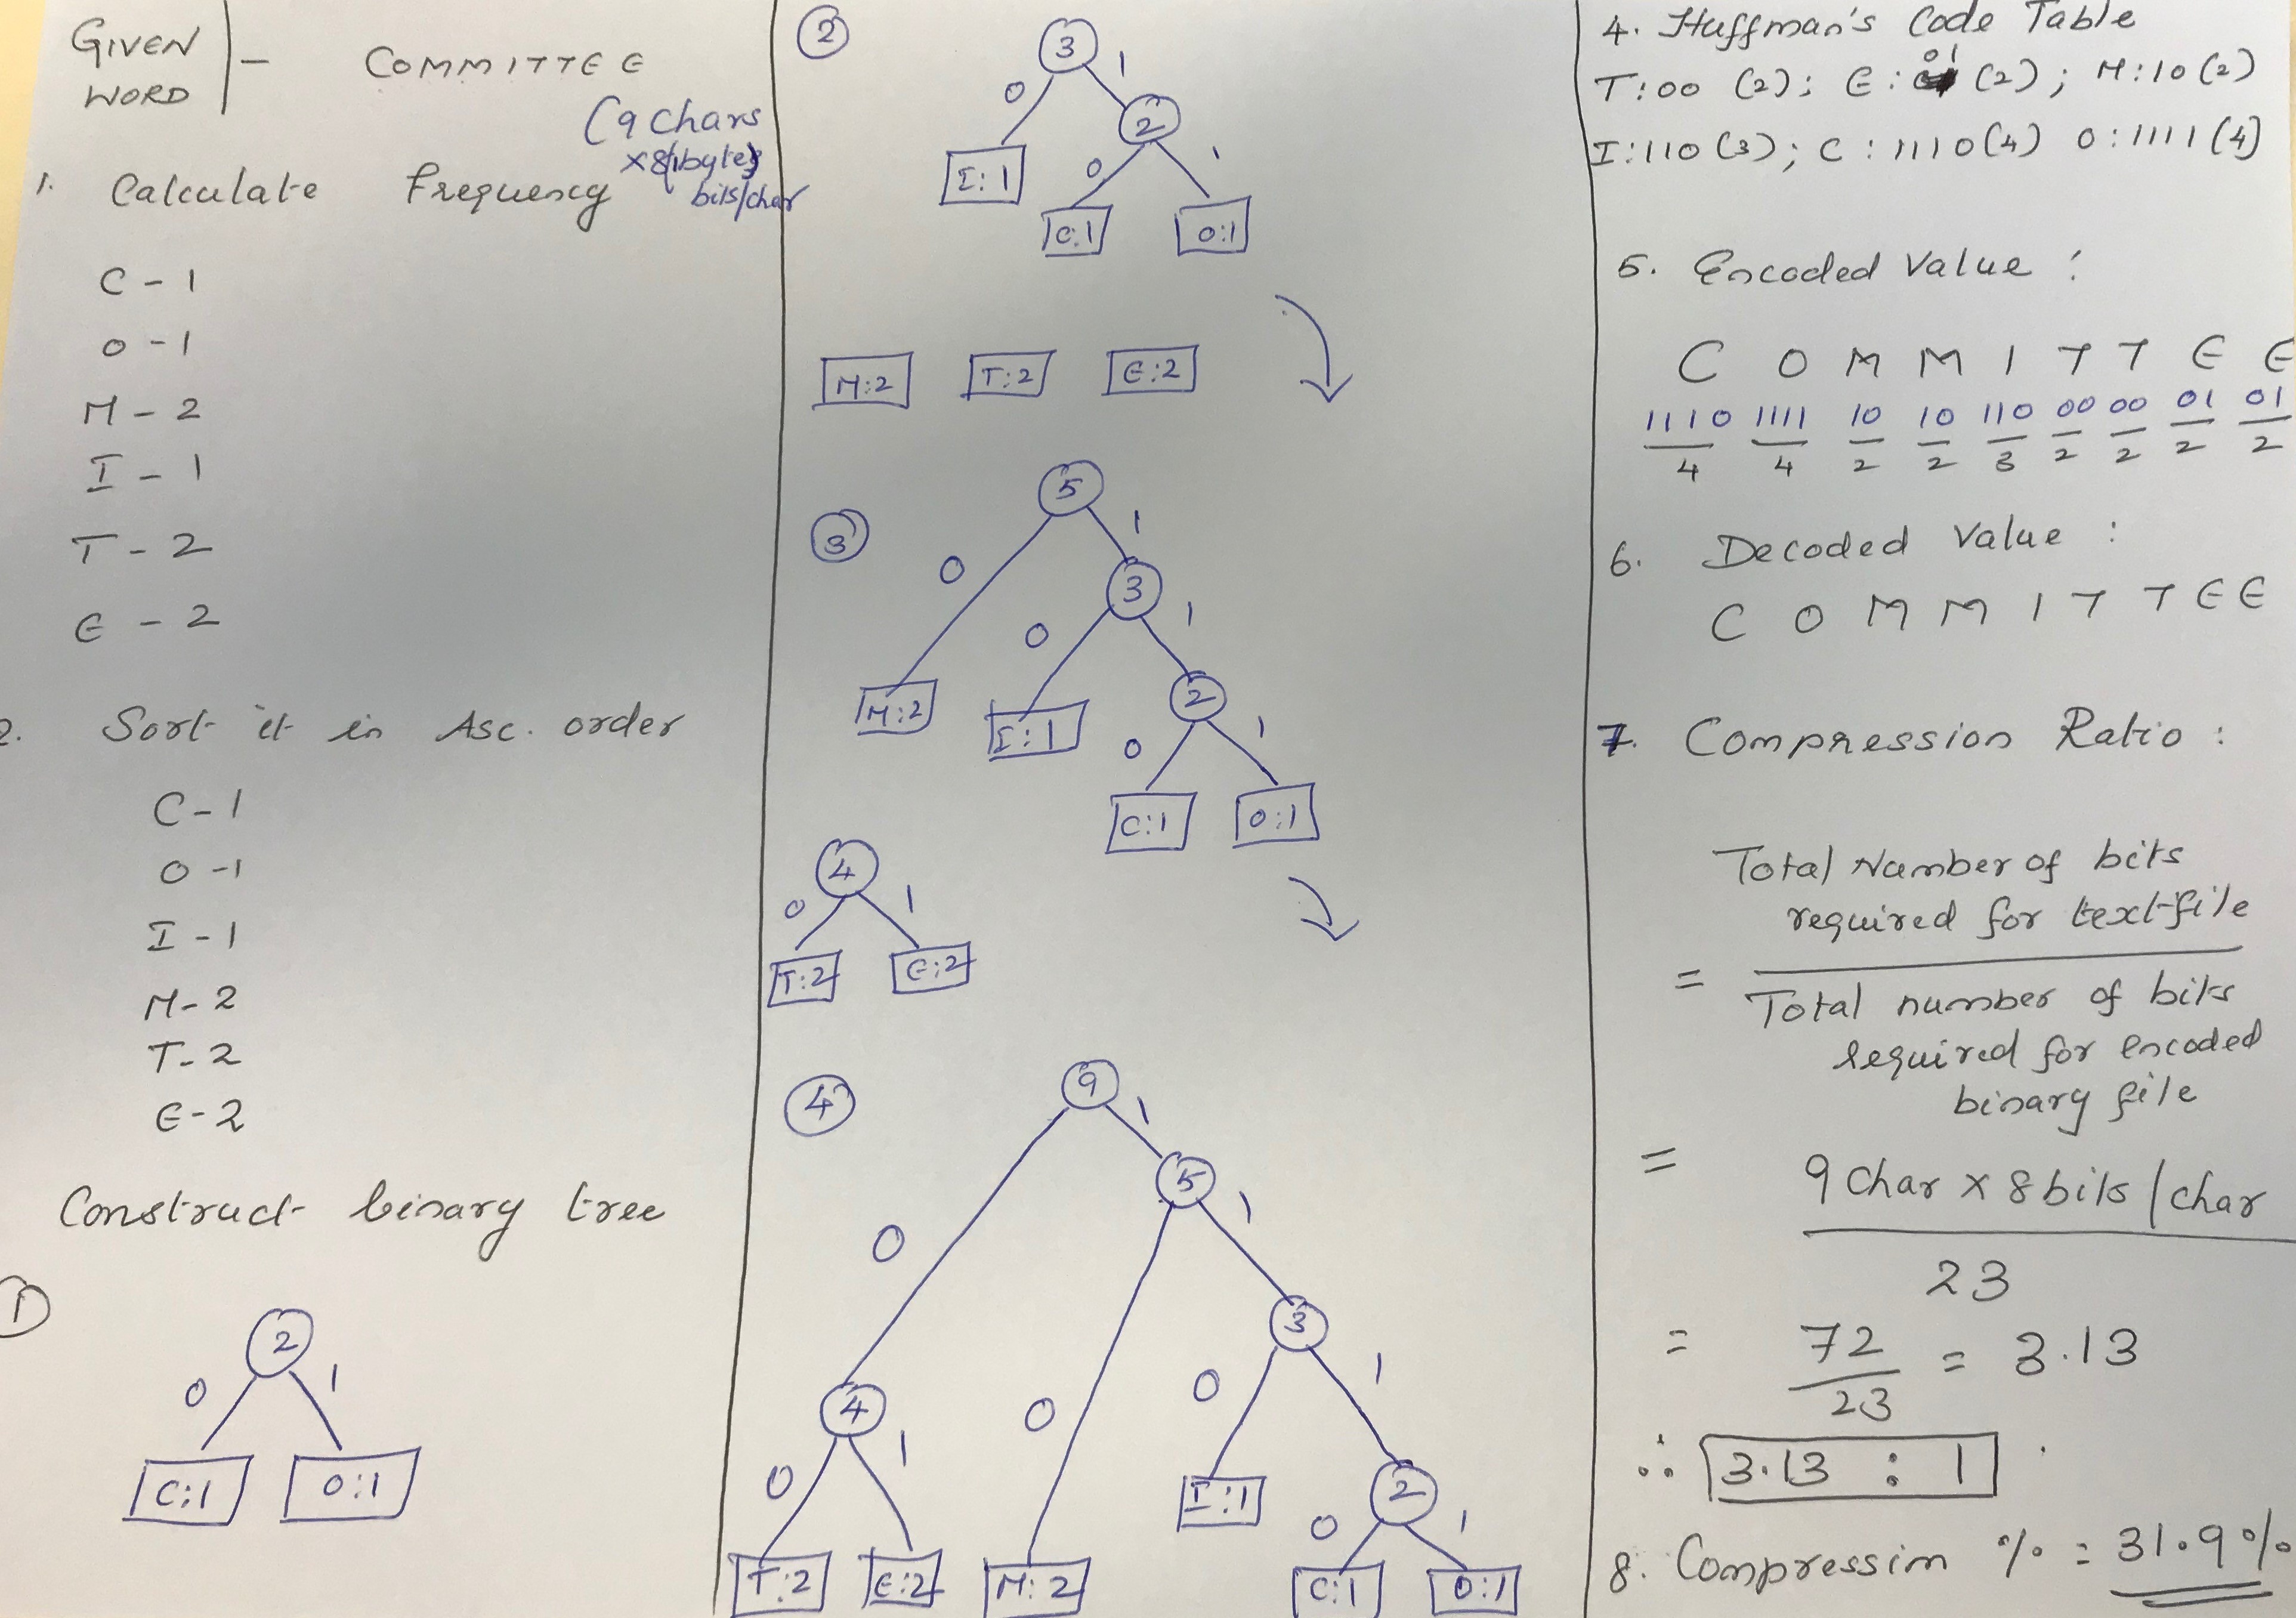 GIVEN WORD | - COMMITTEE
(9 chars
x 8(1byte)
bits/char
1. Calculate Frequency
C - 1
O - 1
M - 2
I - 1
T - 2
E - 2
2. Sort it in Asc. order
C - 1
O - 1
I - 1
M - 2
T - 2
E - 2
Construct binary tree
1
2
0 1
C:1 O:1
2
3
0 1
2
I:1
0 1
C:1 O:1
M:2 T:2 E:2
3
5
0 1
3
0 1
M:2 I:1 2
0 1
C:1 O:1
4
0 1
T:2 E:2
4
9
1
5
0 1
3
0 0 1
4
0 1
I:1 2
0 1
T:2 E:2 M:2 C:1 O:1
4. Huffman's Code Table
T:00 (2); E:01 (2); M:10 (2)
I:110 (3); C:1110 (4) O:1111 (4)
5. Encoded Value :
C O M M I T T E E
1110 1111 10 10 110 00 00 01 01
4 4 2 2 3 2 2 2 2
6. Decoded Value :
C O M M I T T E E
7. Compression Ratio :
Total Number of bits
required for text-file
=
Total number of bits
required for encoded
binary file
= 9 Char x 8 bits / char
23
= 72 = 3.13
23
∴ 3.13 : 1
8. Compression % = 31.9%